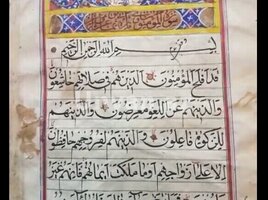 بسم الله الرحمن الرحیم
قد افلح المؤمنون الذینهم فی صلاتهم خاشعون
والذینهم عن اللغو معرضون والذینهم
للزکوة فاعلون والذینهم لفروجهم حافظون
الا علی ازواجهم او ما ملکت ایمانهم فانهم غیر